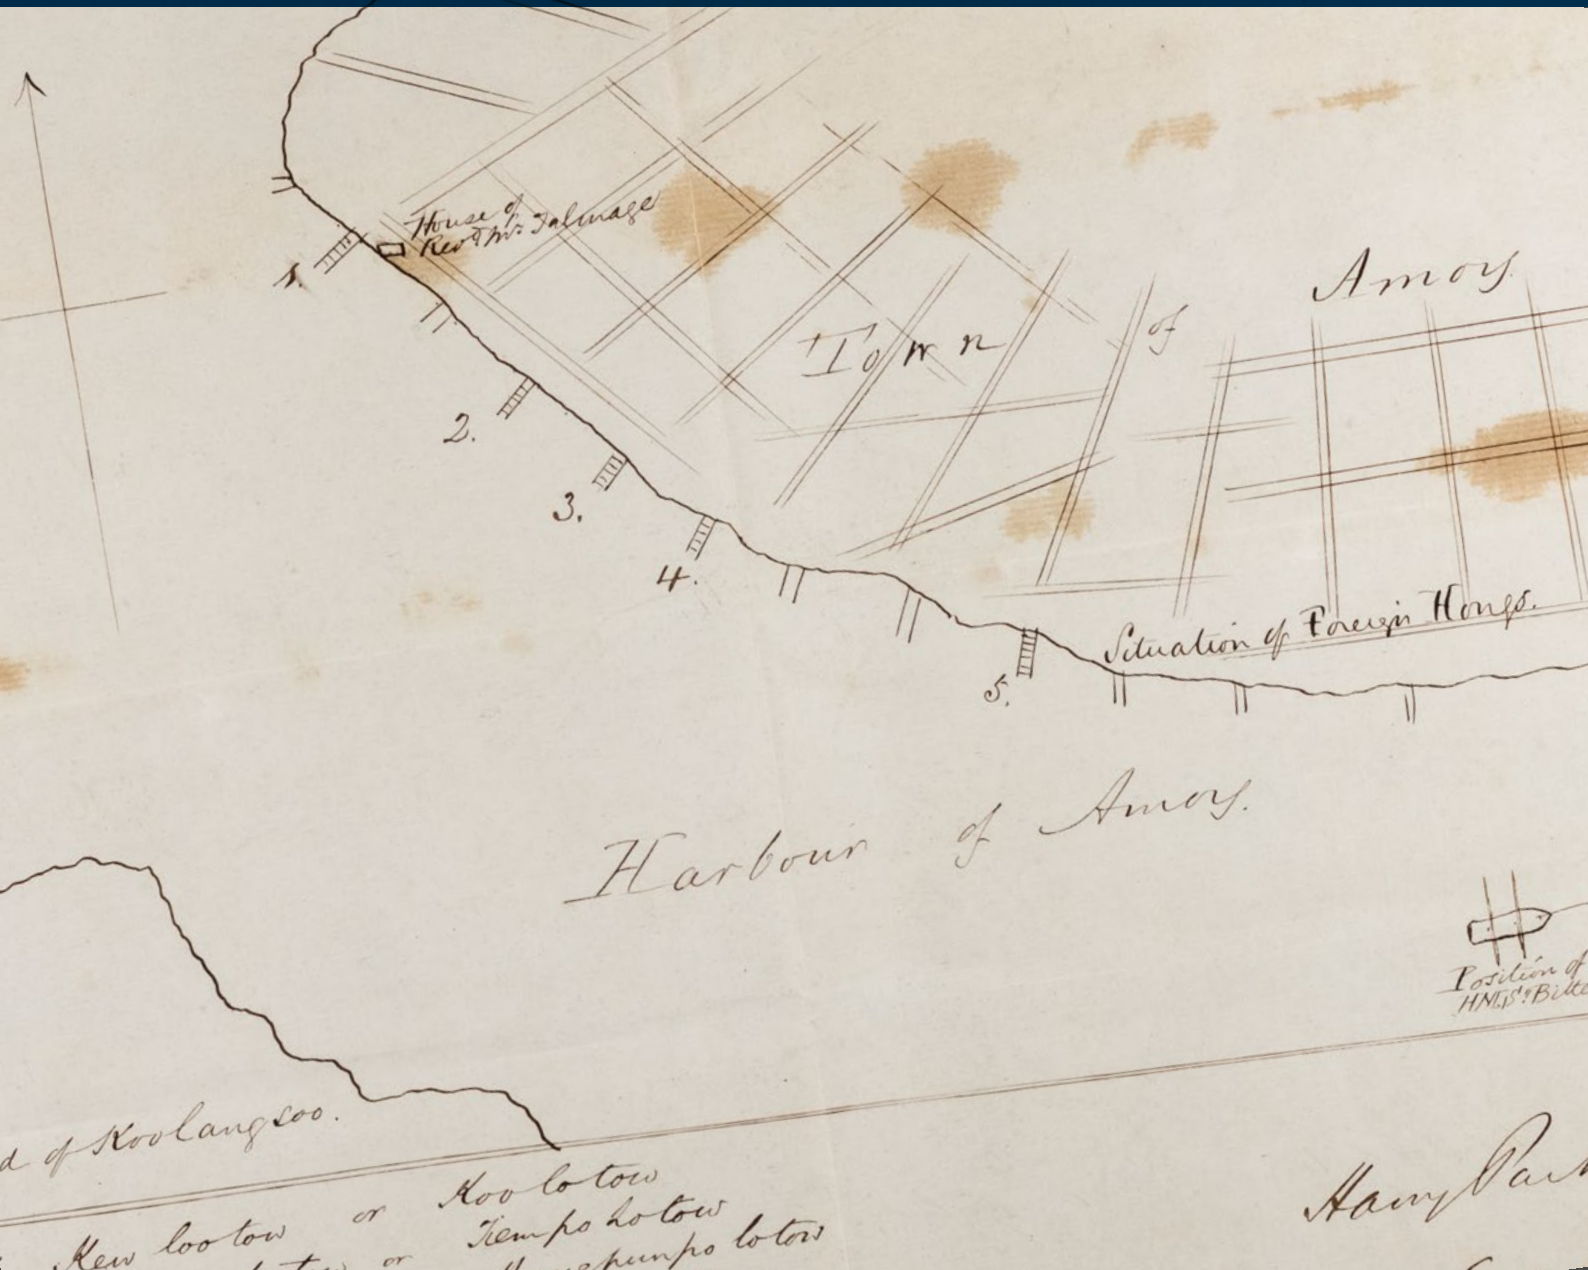 House of
Revd Mr Talmage
1.
2.
3.
4.
5.
Town of Amoy
Situation of Foreign Hongs.
Harbour of Amoy.
Position of
H.M.S.
d of Koolangsoo.
Kew loo tow or Koo lo tow
or Tiempo lo tow
lo tow
Harry